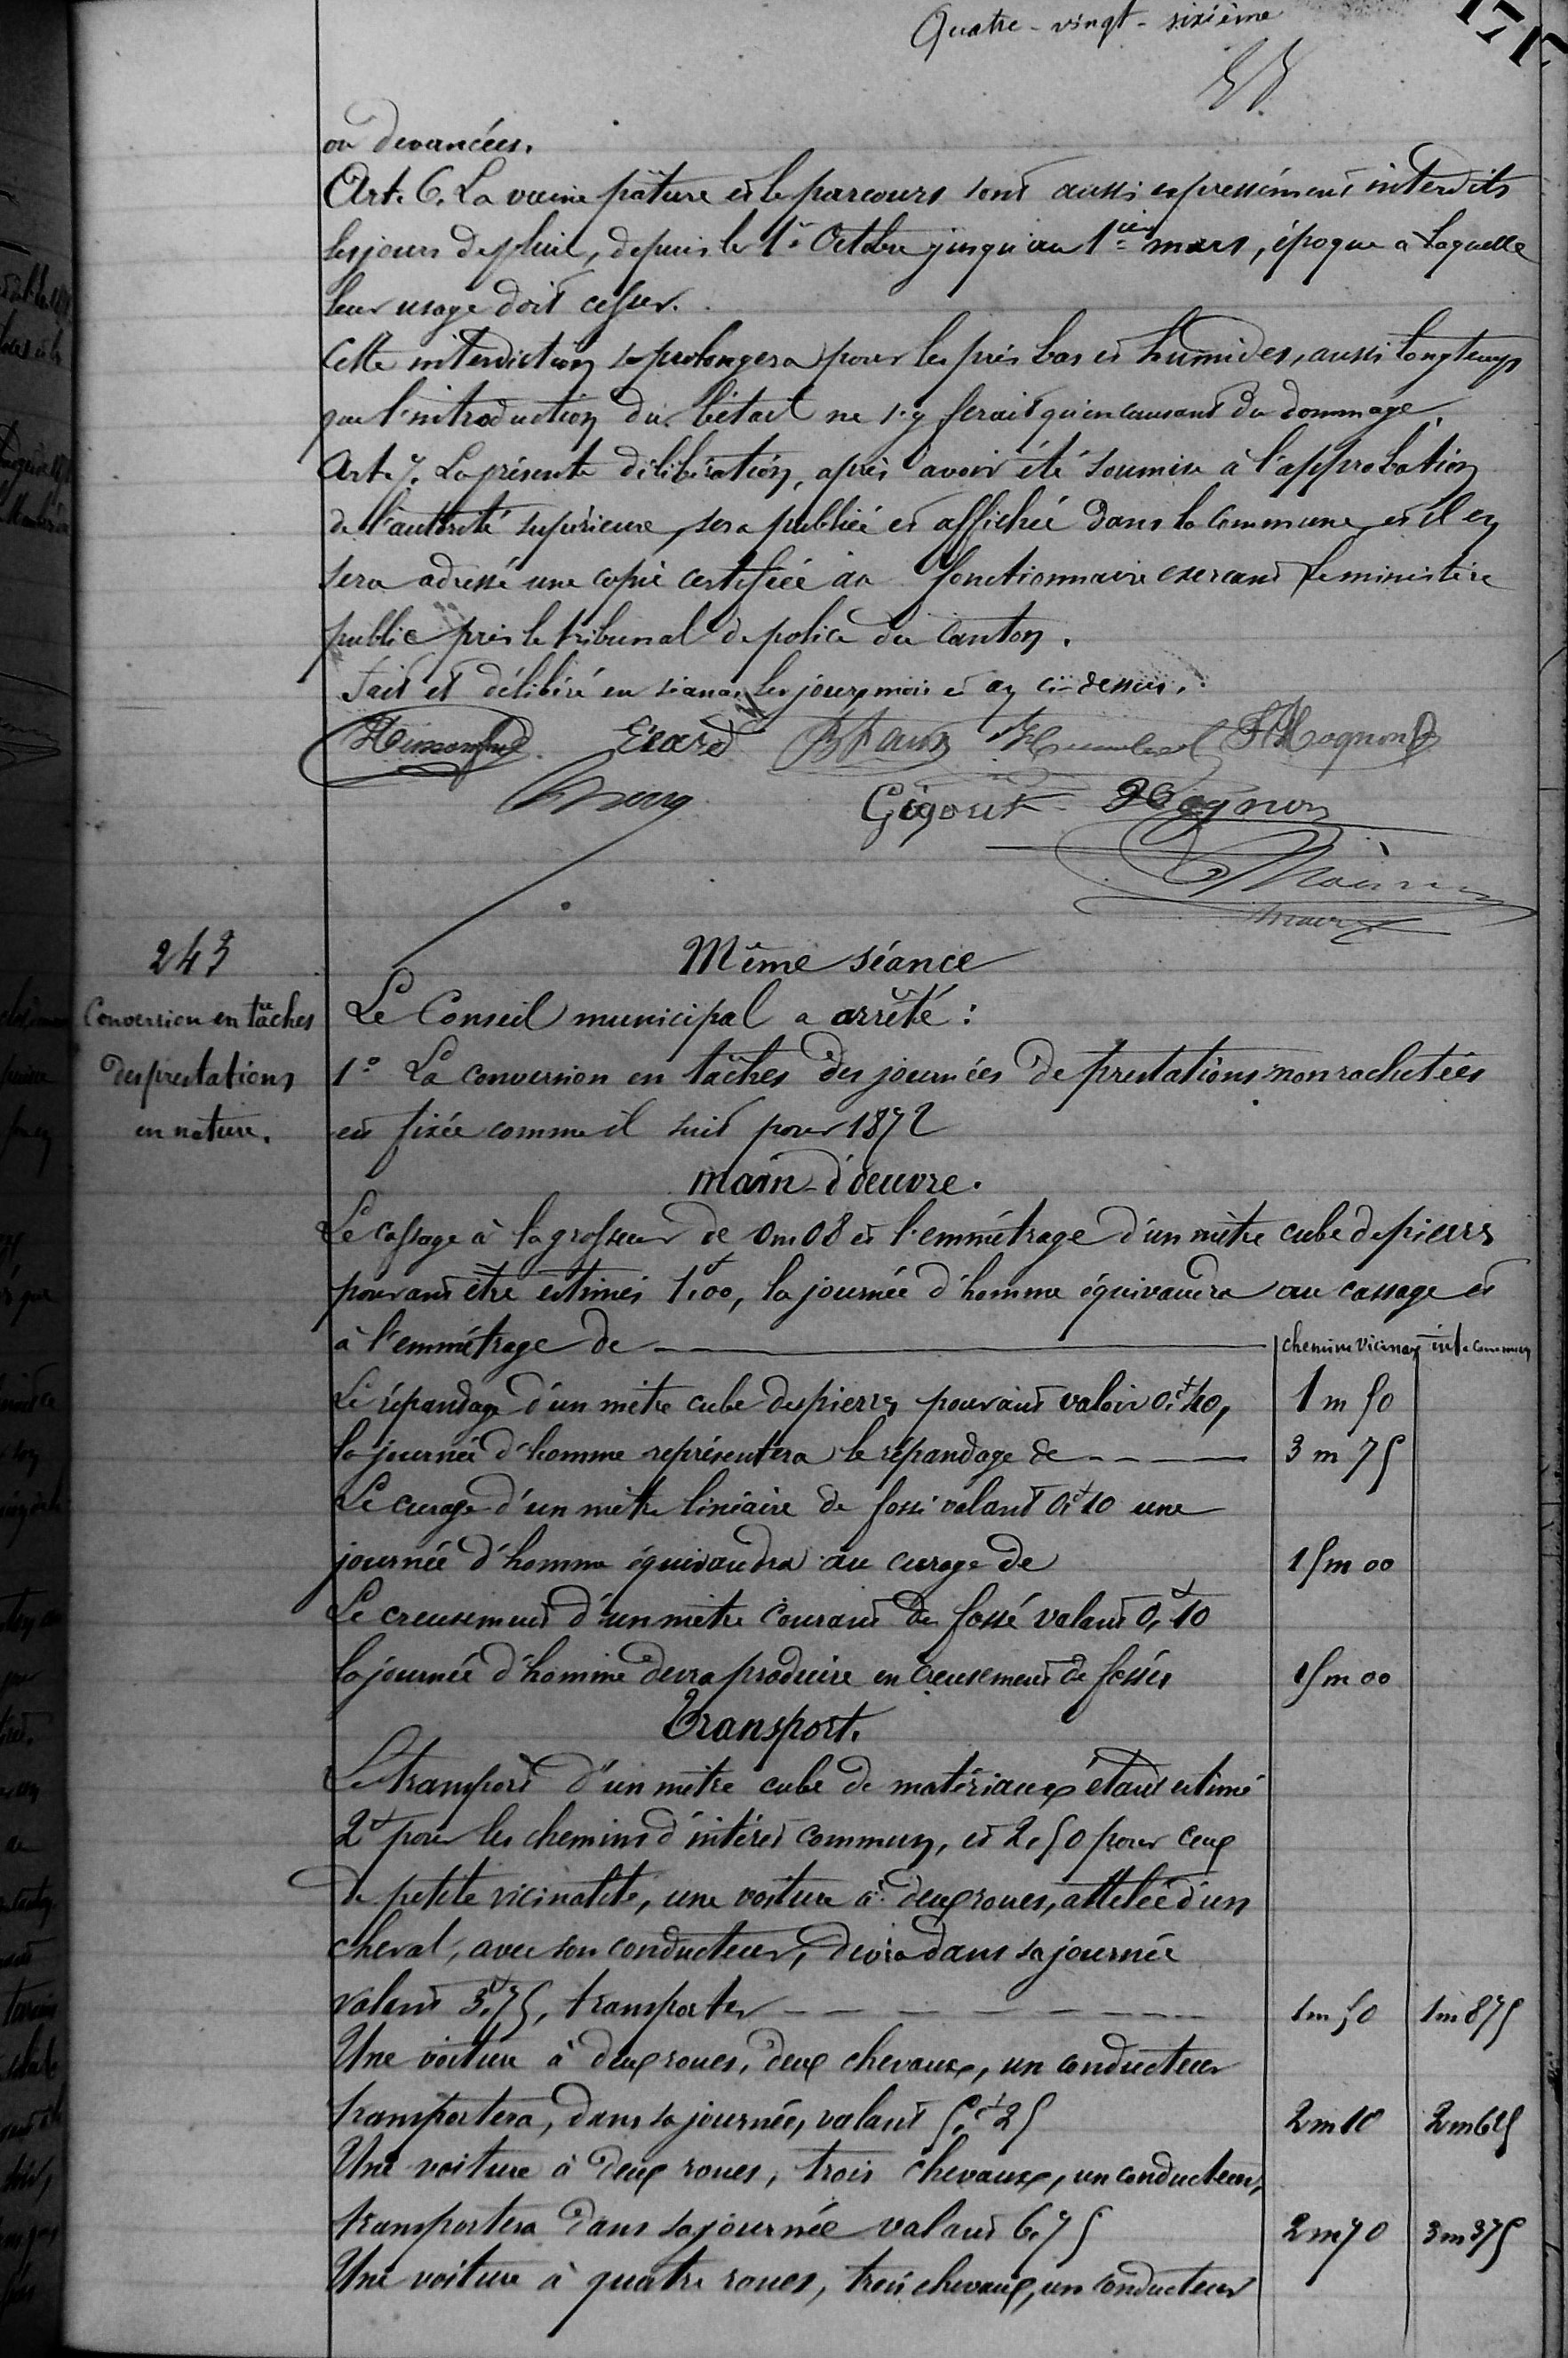 Quatre-vingt-sixième
171
ou devancées.
Art. 6. La vaine pâture et le parcours sont aussi expressément interdits
les jours de pluie, depuis le 1er Octobre jusqu'au 1er mars, époque à laquelle
leur usage doit cesser.
Cette interdiction se prolongera pour les prés bas et humides, aussi longtemps
que l'introduction du bétail ne s'y ferait qu'en causant du dommage.
Art. 7. La présente délibération, après avoir été soumise à l'approbation
de l'autorité supérieure, sera publiée et affichée dans la Commune et il en
sera adressé une copie certifiée au fonctionnaire exercant le ministère
public près le tribunal de police du Canton.
Fait et délibéré en séance les jour, mois et an ci-dessus.
Erard
Hognon
Gigout Hognon
maire
243
Conversion en tâches
des prestations
en nature.
Même séance
Le Conseil municipal a arrêté :
1° La conversion en tâches des journées de prestations non rachetées
est fixée comme il suit pour 1872
main-d'œuvre.
Le cassage à la grosseur de 0m08 et l'emmétrage d'un mètre cube de pierres
pouvant être estimés 1f,00, la journée d'homme équivaudra au cassage et
à l'emmétrage de chemins vicinaux int. commun
Le répandage d'un mètre cube de pierres pouvant valoir 0f,40, 1 m 50
la journée d'homme représentera le répandage de 3 m 75
Le curage d'un mètre linéaire de fossé valant 0f,10 une
journée d'homme équivaudra au curage de 15m 00
Le creusement d'un mètre courant de fossé valant 0f,10
la journée d'homme devra produire en creusement de fossés 15m 00
Transport.
Le transport d'un mètre cube de matériaux étant estimé
2f pour les chemins d'intérêt commun, et 2,50 pour ceux
de petite vicinalité, une voiture à deux roues, attelée d'un
cheval, avec son conducteur, devra dans sa journée
valant 3f,75, transporter 1m50 1m875
Une voiture à deux roues, deux chevaux, un conducteur
transportera, dans sa journée, valant 5f,25 2m10 2m625
Une voiture à deux roues, trois chevaux, un conducteur,
transportera dans sa journée valant 6,75 2m70 3m375
Une voiture à quatre roues, trois chevaux, un conducteur